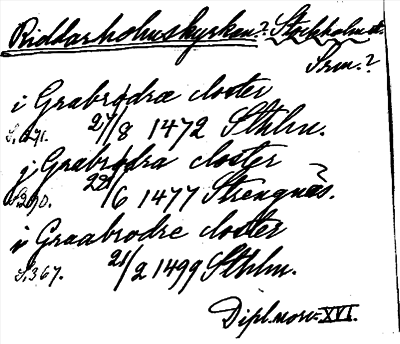 Riddarholmskyrkan? Stockholm st.
Srm.?
i Grabrødræ closter
S. 271. 27/8 1472 Sthlm.
j Grabrødra closter
S. 290. 22/6 1477 Strengnäs.
i Graabrodre closter
S. 367. 21/2 1499 Sthlm.
Dipl. norv. XVI.